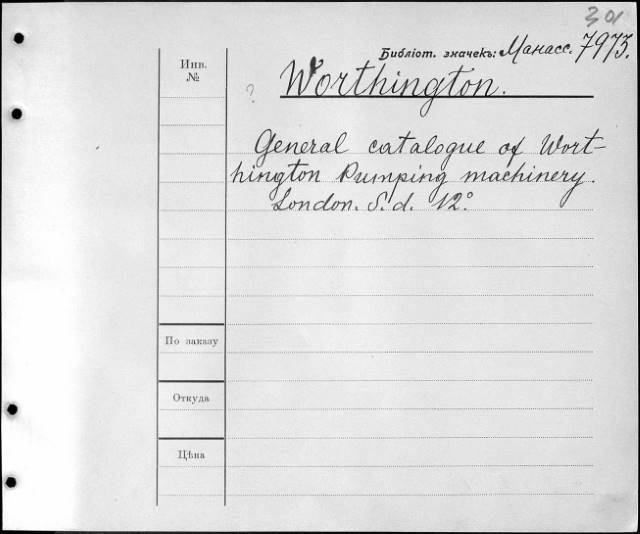 301
Библіот. значекъ: Манасс. 7973.
Инв.
№
?
Worthington.
General catalogue of Wort-
hington Pumping machinery.
London. S. d. 12°
По заказу
Откуда
Цѣна